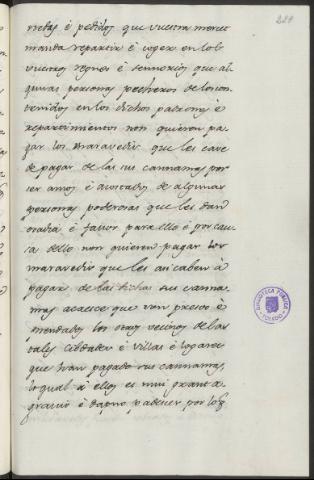 229
nedas é pedidos que vuestra merced
manda repartir é coger en los
vuestros regnos é sennorios que al
gunas personas pecheros de los con
tenidos en los dichos padrones é
repartimientos non quieren pa
gar los maravedis que les cave
de pagar de las sus cannamas por
ser amos é avocados de algunas
personas poderosas que les dan
osadia é favor para ello é por cau
sa dello non quieren pagar los
maravedis que les asi caben á
pagar de las dichas sus canna
mas acaece que van presos é
prendados los otros vecinos de las
tales cibdades é villas é logares
que han pagado sus cannamas,
lo qual á ellos es mui grant a
gravio é dapno padecer por lo q
BIBLIOTECA PUBLICA
TOLEDO